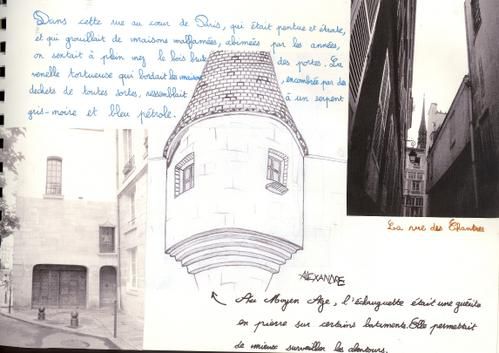 Dans cette rue au cœur de Paris, qui était pentue et étroite,
et qui grouillait de maisons malfamées, abimées par les années,
on sentait à plein nez le bois brulé des portes. La
ruelle tortueuse qui bordait les maisons, encombrée par des
dechets de toutes sortes, ressemblait à un serpent
gris-noir et bleu pétrole.
La rue des Chantres
ALEXANDRE
Au Moyen Age, l'échauguette était une guérite
en pierre sur certains batiments. Elle permettait
de mieux surveiller les alentours.